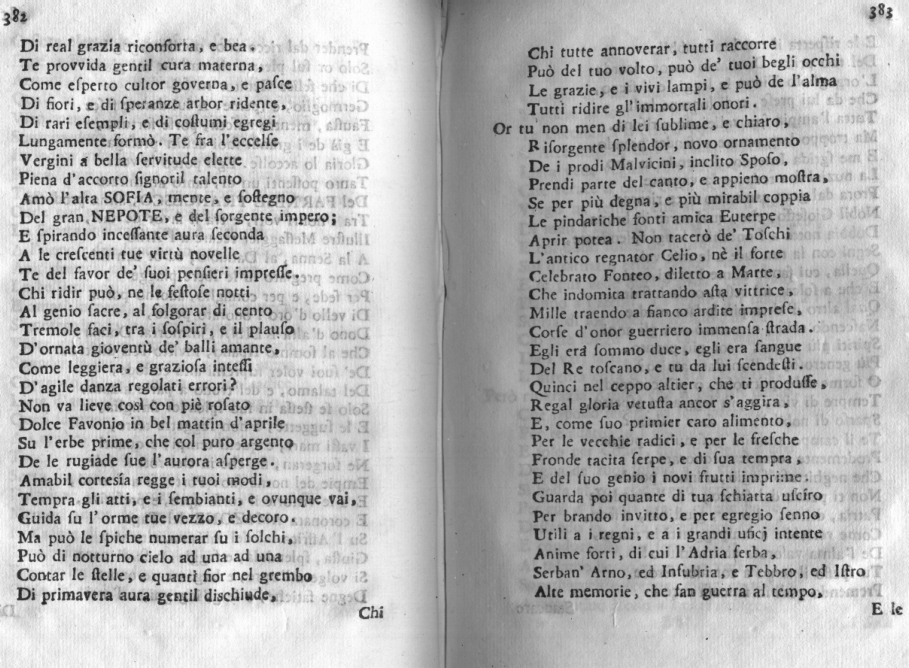 382
Di real grazia riconforta, e bea.
Te provvida gentil cura materna,
Come eſperto cultor governa, e paſce
Di fiori, e di ſperanze arbor ridente,
Di rari eſempli, e di coſtumi egregi
Lungamente formò. Te fra l'eccelſe
Vergini a bella ſervitude elette
Piena d'accorto ſignoril talento
Amò l'alta SOFIA, mente, e ſoſtegno
Del gran NEPOTE, e del ſorgente impero;
E ſpirando inceſſante aura ſeconda
A le creſcenti tue virtù novelle
Te del favor de' ſuoi penſieri impreſſe.
Chi ridir può, ne le feſtoſe notti
Al genio ſacre, al folgorar di cento
Tremole faci, tra i ſoſpiri, e il plauſo
D'ornata gioventù de' balli amante,
Come leggiera, e grazioſa inteſſi
D'agile danza regolati errori?
Non va lieve così con piè roſato
Dolce Favonio in bel mattin d'aprile
Su l'erbe prime, che col puro argento
De le rugiade ſue l'aurora aſperge.
Amabil corteſia regge i tuoi modi,
Tempra gli atti, e i ſembianti, e ovunque vai,
Guida ſu l'orme tue vezzo, e decoro.
Ma può le ſpiche numerar ſu i ſolchi,
Può di notturno cielo ad una ad una
Contar le ſtelle, e quanti fior nel grembo
Di primavera aura gentil diſchiude,
Chi
383
Chi tutte annoverar, tutti raccorre
Può del tuo volto, può de' tuoi begli occhi
Le grazie, e i vivi lampi, e può de l'alma
Tutti ridire gl'immortali onori.
Or tu non men di lei ſublime, e chiaro,
Riſorgente ſplendor, novo ornamento
De i prodi Malvicini, inclito Spoſo,
Prendi parte del canto, e appieno moſtra,
Se per più degna, e più mirabil coppia
Le pindariche fonti amica Euterpe
Aprir potea. Non tacerò de' Toſchi
L'antico regnator Celio, nè il forte
Celebrato Fonteo, diletto a Marte,
Che indomita trattando aſta vittrice,
Mille traendo a fianco ardite impreſe,
Corſe d'onor guerriero immenſa ſtrada.
Egli era ſommo duce, egli era ſangue
Del Re toſcano, e tu da lui ſcendeſti.
Quinci nel ceppo altier, che ti produſſe,
Regal gloria vetuſta ancor s'aggira,
E, come ſuo primier caro alimento,
Per le vecchie radici, e per le freſche
Fronde tacita ſerpe, e di ſua tempra,
E del ſuo genio i novi frutti imprime.
Guarda poi quante di tua ſchiatta uſciro
Per brando invitto, e per egregio ſenno
Utili a i regni, e a i grandi uficj intente
Anime forti, di cui l'Adria ſerba,
Serban' Arno, ed Inſubria, e Tebbro, ed Iſtro
Alte memorie, che fan guerra al tempo,
E le